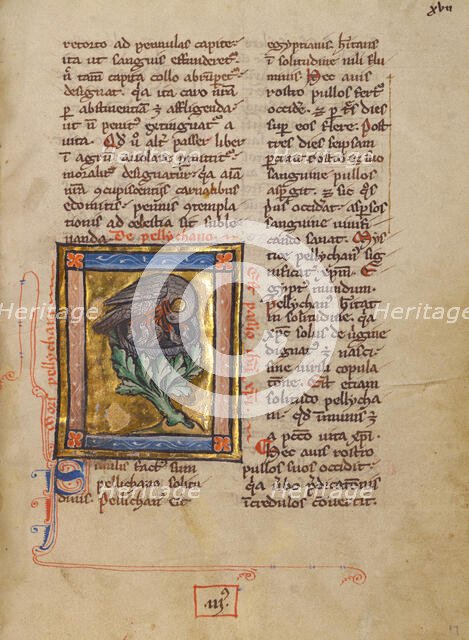 xvii
retorto ad pennulas capite
ita ut sanguis effunderet᷑
n̄ tam̄ capita collo abrumpet᷑
designat. qa ita caro nr̄a
ꝑ abstinentiam ⁊ affligenda
ut n̄ penit᷑ extinguat᷑ a
uita. Qd u᷑ alt᷑ passer liber
in agrū auolare ꝑmittit᷑
moralit᷑ designatur. qa aīam
nr̄am ꝯcupiscentiis carnalibus
edomitis. pennis ꝯtempla
tionis ad celestia sit suble
uanda. De pellychano
Similis fact᷑ sum
pellichano solitu
dinis. Pellichan᷑ est
egyptiacis. hitans
in solitudine nili flu
minis. Hec auis
rostro pullos fert᷑
occidere. ⁊ ꝑ tres dies
suꝑ eos flere. Post
tres dies seipsam
ꝑcutit rostro ⁊ suo
sanguine pullos
aspgit. ⁊ sic q̄s
occiderat. asꝑsos
sanguine uiuifi
cando sanat. Mys
tice pellychan᷑ sig
nificat xp̄m. E
gypt᷑ mundum.
pellychan᷑ hitat
in solitudine. qa
xp̄c solus de uirgine
dignat᷑ nasci
sine uirili copula
tione. Est etiam
solitudo pellycha
ni. qd inmunis ē
a pctō uita xp̄i.
Hec auis rostro
pullos suos occidit.
qa uerbo p̄dicationis
incredulos conuertit.
.iiiꝰ.
17
Heritage
Images